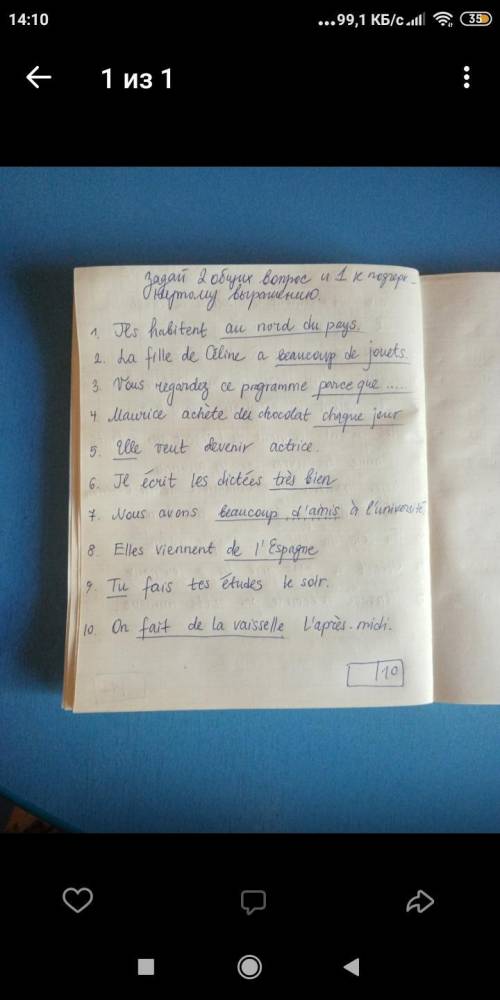 14:10
...99,1 КБ/с
35
1 из 1
Задай 2 общих вопрос и 1 к подчерк-
нутому выражению.
1. Ils habitent au nord du pays.
2. La fille de Céline a beaucoup de jouets.
3. Vous regardez ce programme parce que .....
4. Maurice achète du chocolat chaque jour
5. Elle veut devenir actrice.
6. Il écrit les dictées très bien
7. Nous avons beaucoup d'amis à l'université
8. Elles viennent de l'Espagne
9. Tu fais tes études le soir.
10. On fait de la vaisselle l'après-midi.
/10